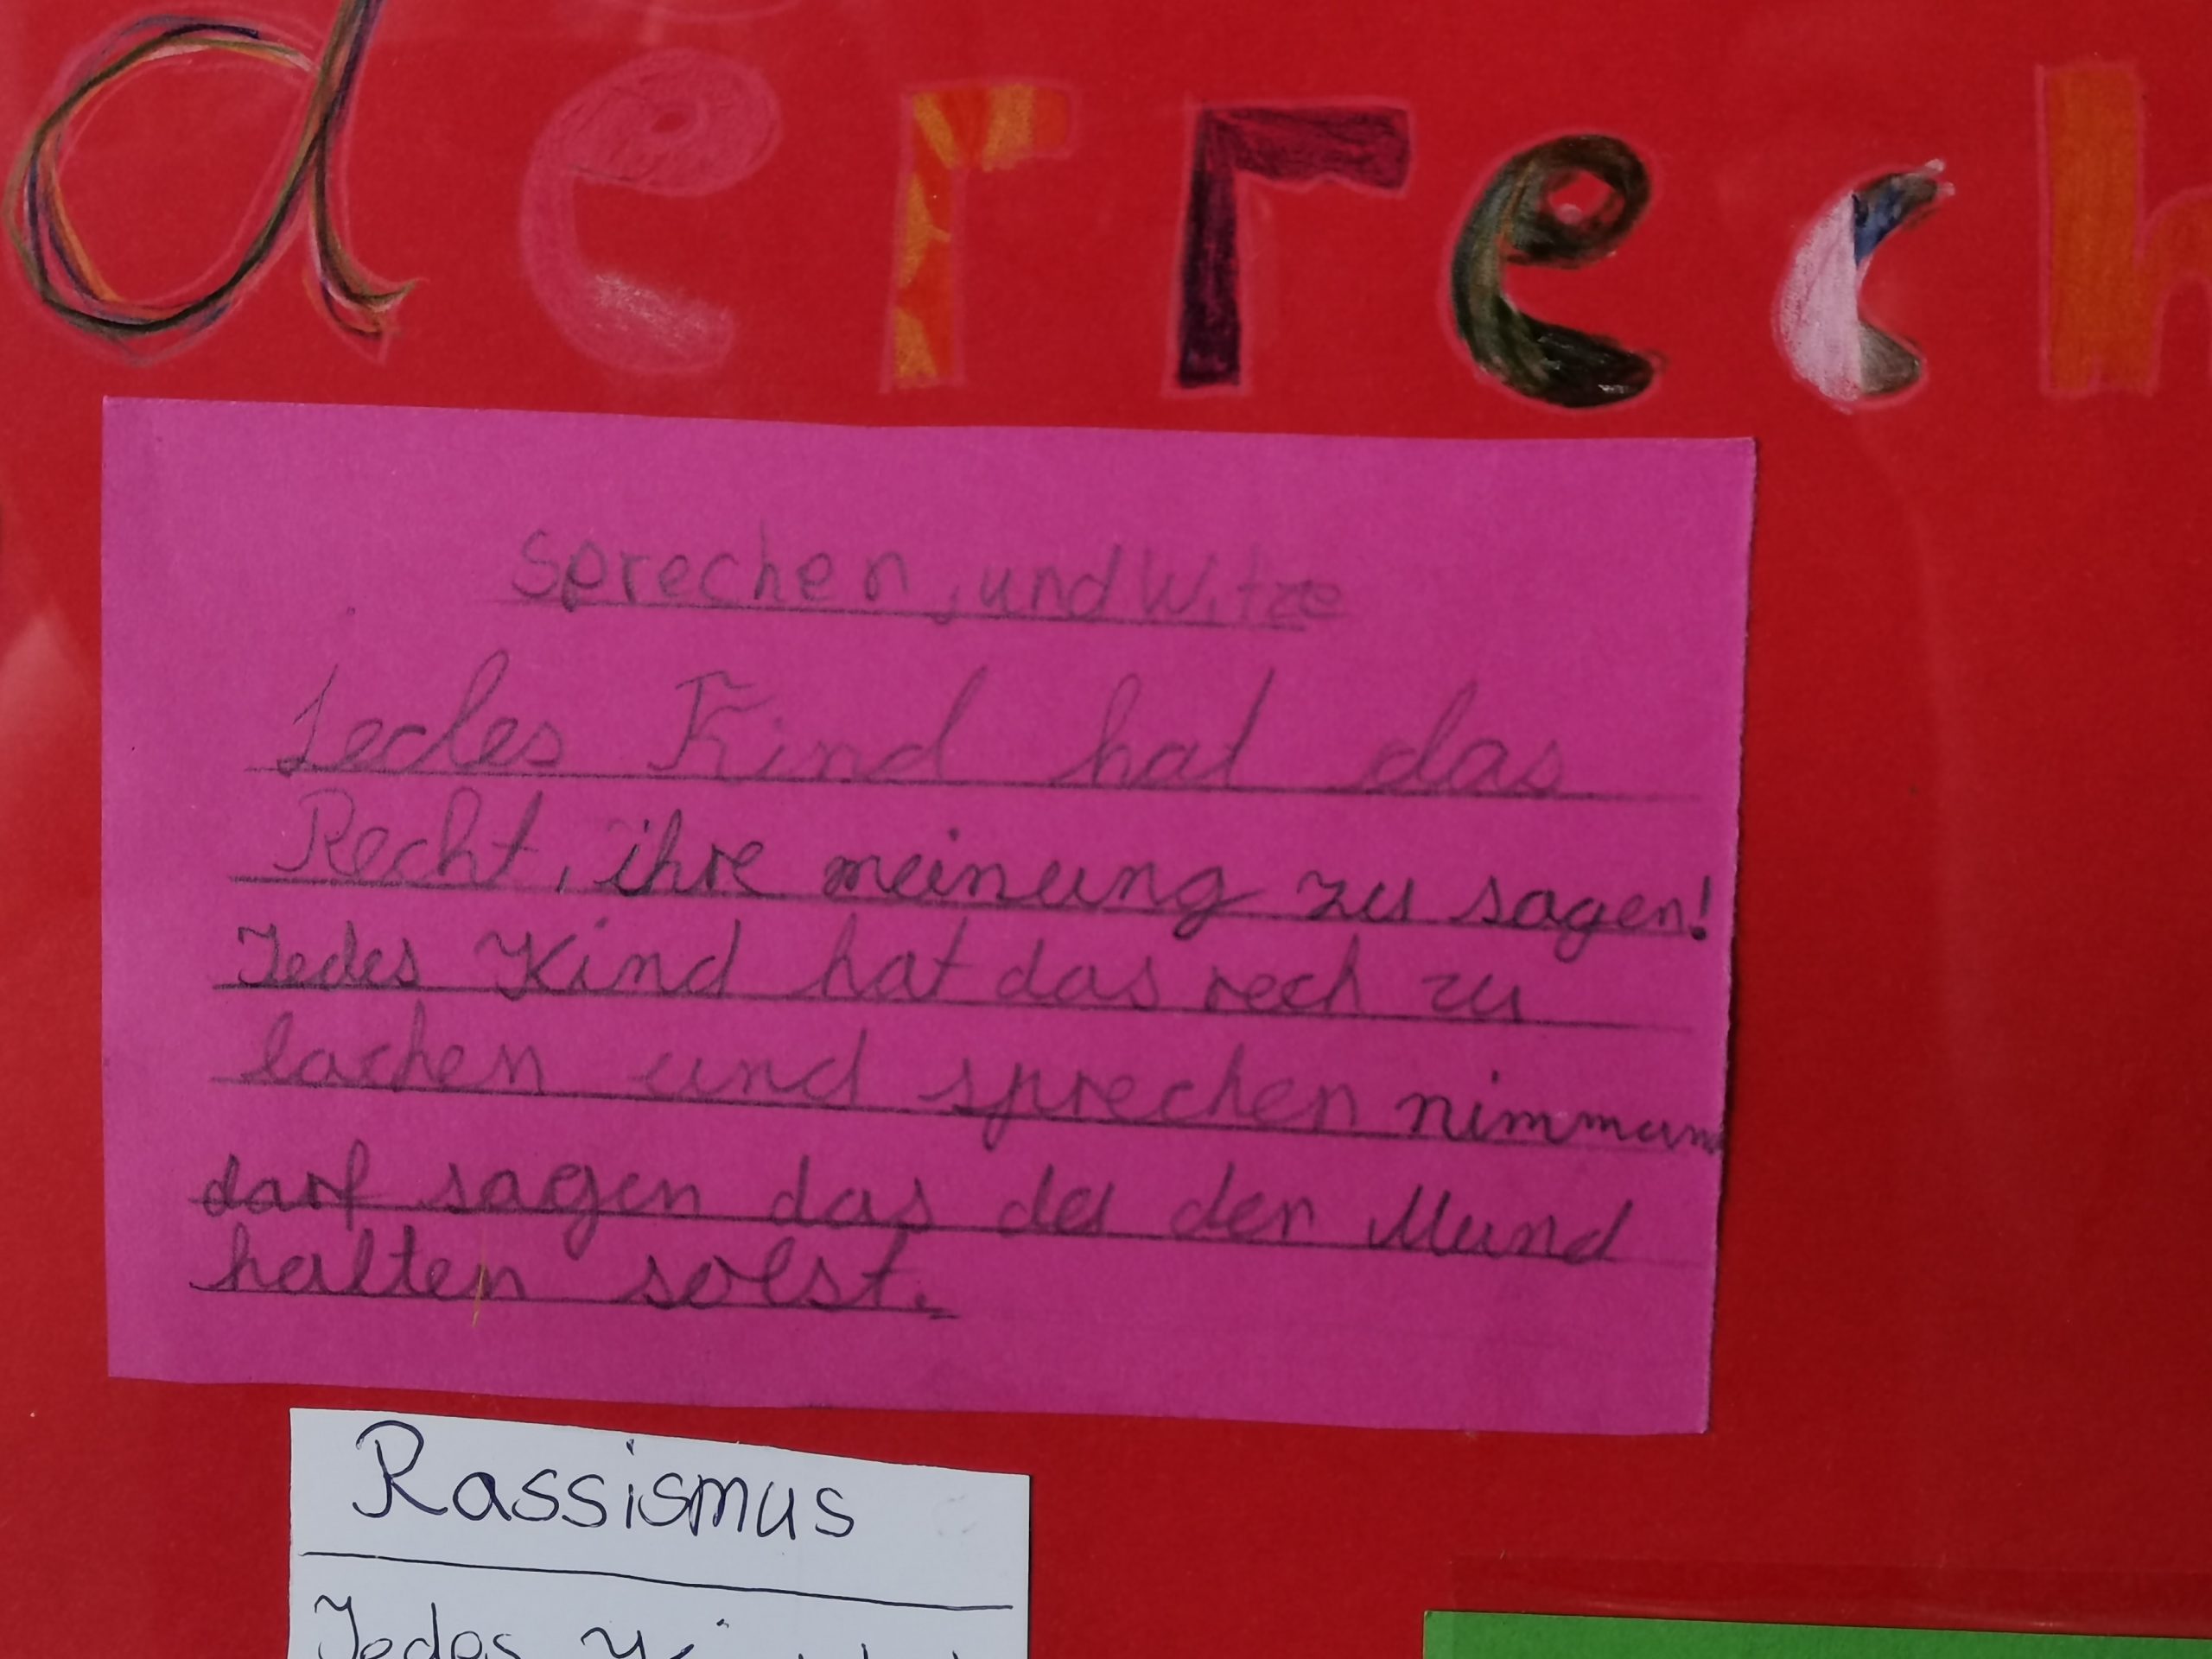 derrech
Sprechen, und Witze
Jedes Kind hat das
Recht, ihre meinung zu sagen!
Jedes Kind hat das rech zu
lachen und sprechen nimmand
darf sagen das du den Mund
halten solst.
Rassismus
Jedes